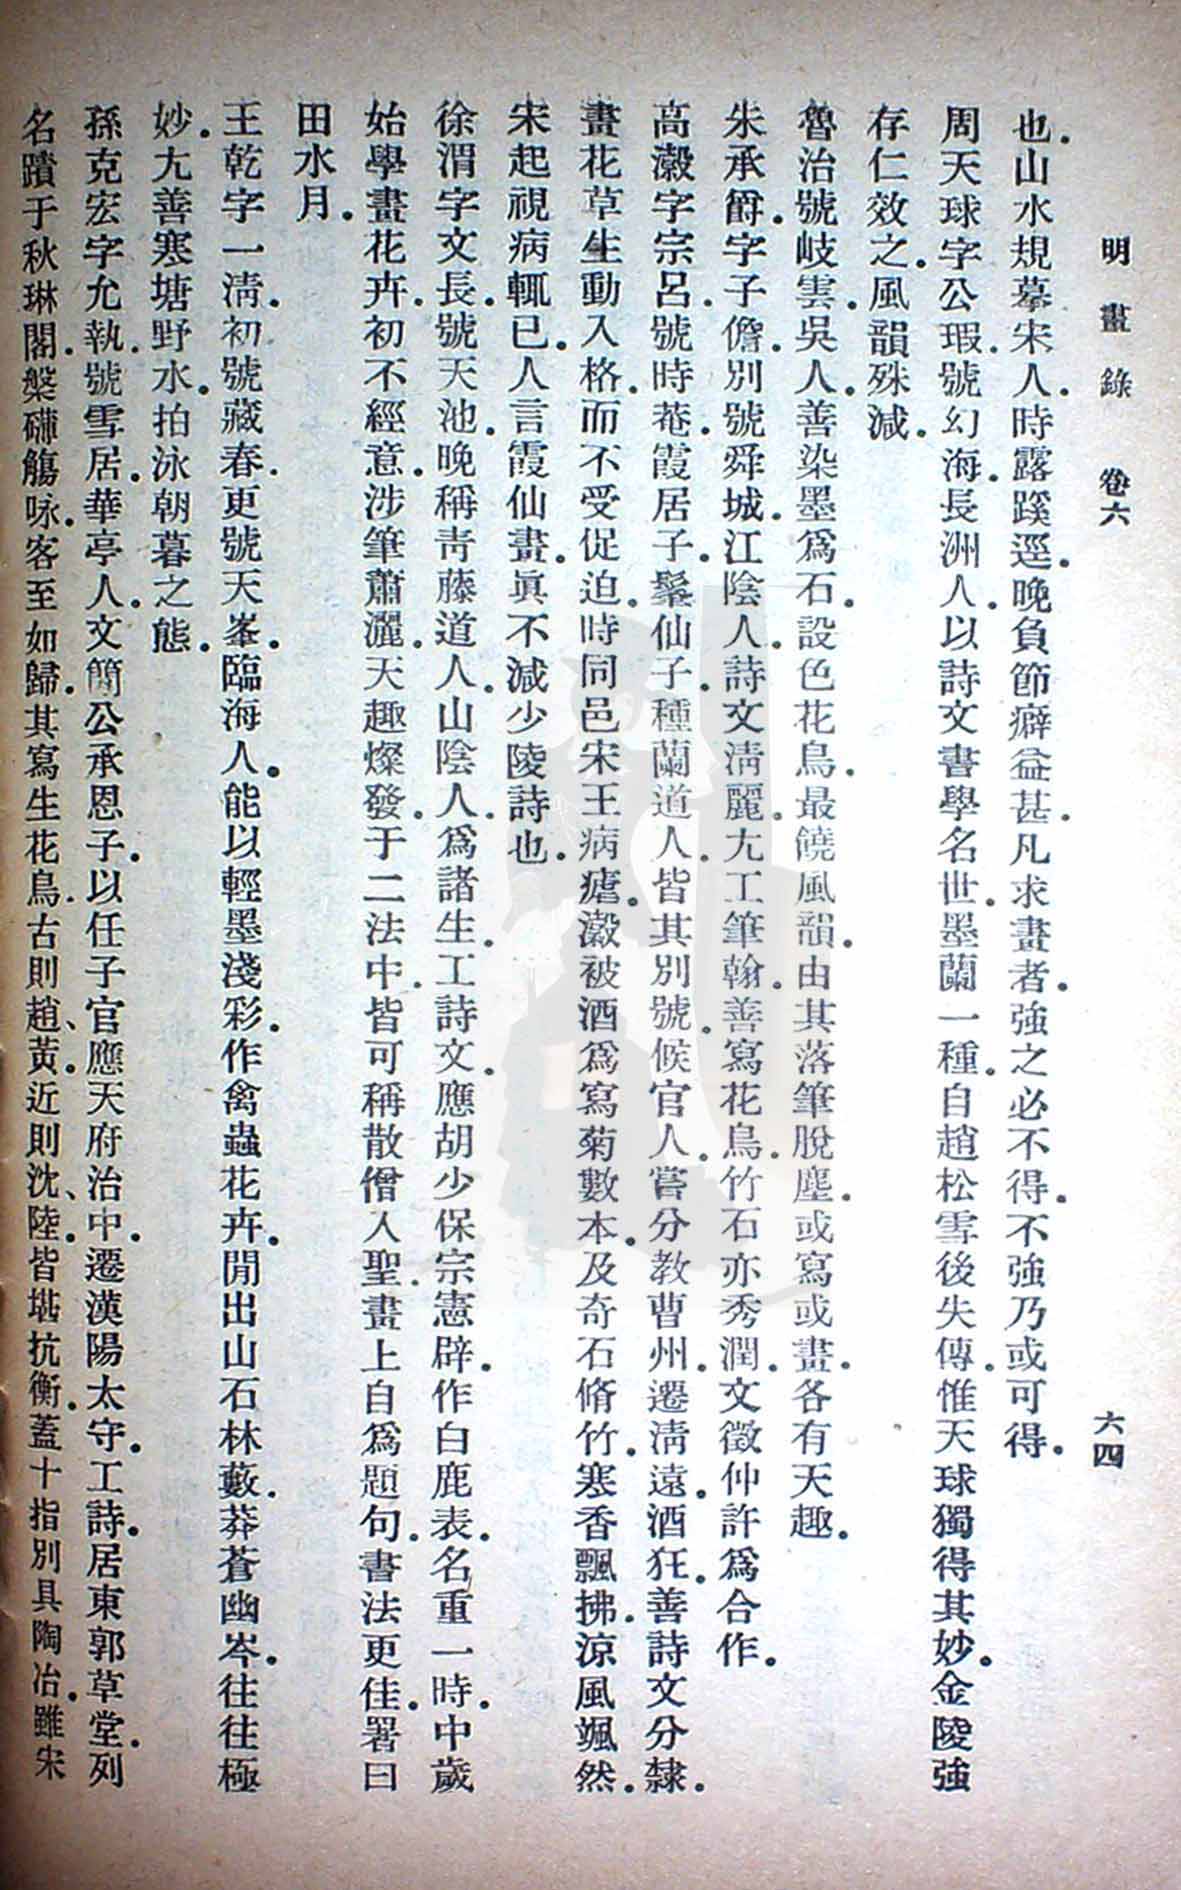 明畫錄 卷六 六四
也。山水規摹宋人。時露蹊逕。晚負節癖益甚。凡求畫者。強之必不得。不強乃或可得。
周天球字公瑕。號幻海。長洲人。以詩文書學名世。墨蘭一種。自趙松雪後失傳。惟天球獨得其妙。金陵強
存仁效之。風韻殊減。
魯治號岐雲。吳人。善染墨爲石。設色花鳥。最饒風韻。由其落筆脫塵。或寫或畫。各有天趣。
朱承爵。字子儋。別號舜城。江陰人。詩文淸麗。尢工筆翰。善寫花鳥。竹石亦秀潤。文徵仲許爲合作。
高瀔字宗呂。號時菴。霞居子。髼仙子。種蘭道人。皆其別號。候官人。嘗分教曹州。遷淸遠。酒狂。善詩文分隸。
畫花草生動入格。而不受促迫。時同邑宋王病瘧。瀔被酒爲寫菊數本。及奇石脩竹。寒香飄拂。涼風颯然。
宋起視病輒已。人言霞仙畫。眞不減少陵詩也。
徐渭字文長。號天池。晚稱靑藤道人。山陰人。爲諸生。工詩文。應胡少保宗憲辟。作白鹿表。名重一時。中歲
始學畫花卉。初不經意。涉筆蕭灑。天趣燦發。于二法中。皆可稱散僧入聖。畫上自爲題句。書法更佳。署曰
田水月。
王乾字一淸。初號藏春。更號天峯。臨海人。能以輕墨淺彩。作禽蟲花卉。閒出山石林藪。莽蒼幽岑。往往極
妙。尢善寒塘野水。拍泳朝暮之態。
孫克宏字允執。號雪居。華亭人。文簡公承恩子。以任子官應天府治中。遷漢陽太守。工詩。居東郭草堂。列
名蹟于秋琳閣。槃礴觴咏。客至如歸。其寫生花鳥。古則趙、黃。近則沈、陸。皆堪抗衡。蓋十指別具陶冶。雖宋